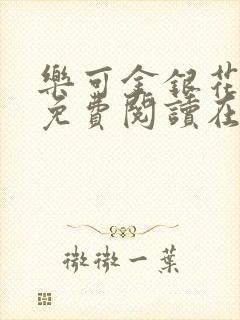 樂可金銀花
免費閱讀在
微微一葉